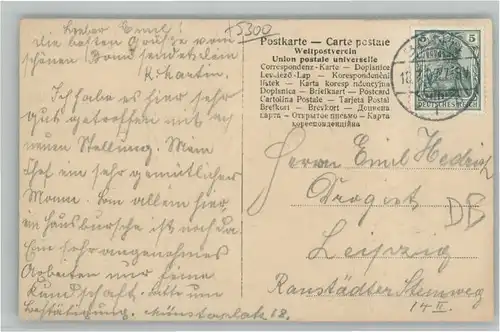 +5300
Lieber Emil!
die besten Grüsse vom
schönen Bonn sendet dein
K. Martin.
Ich habe es hier sehr
gut getroffen mit
neuen Stellung. Mein
Chef ein sehr gemütlicher
Mann. Bin allein hier,
ein Hausbursche ist noch da
Eine sehr angenehmes
Arbeiten nur feine
Kundschaft. Bitte um
Bestätigung. Münsterplatz 18.
Postkarte — Carte postale
Weltpostverein
Union postale universelle
Correspondenz-Karte — Dopisnice
Levelező-Lap — Korespondenčni
lístek — Karta korespondencyjna
Dopisnica — Briefkaart — Postcard
Cartolina Postale — Tarjeta Postal
Brefkort — Brevkort — Дописна
карта — Открытое письмо — Карта
кореспонденцiйна
5 5
DEUTSCHES REICH
Herrn Emil Hedrich
Drogist
DB
Leipzig
Ranstädter Steinweg
14 II.